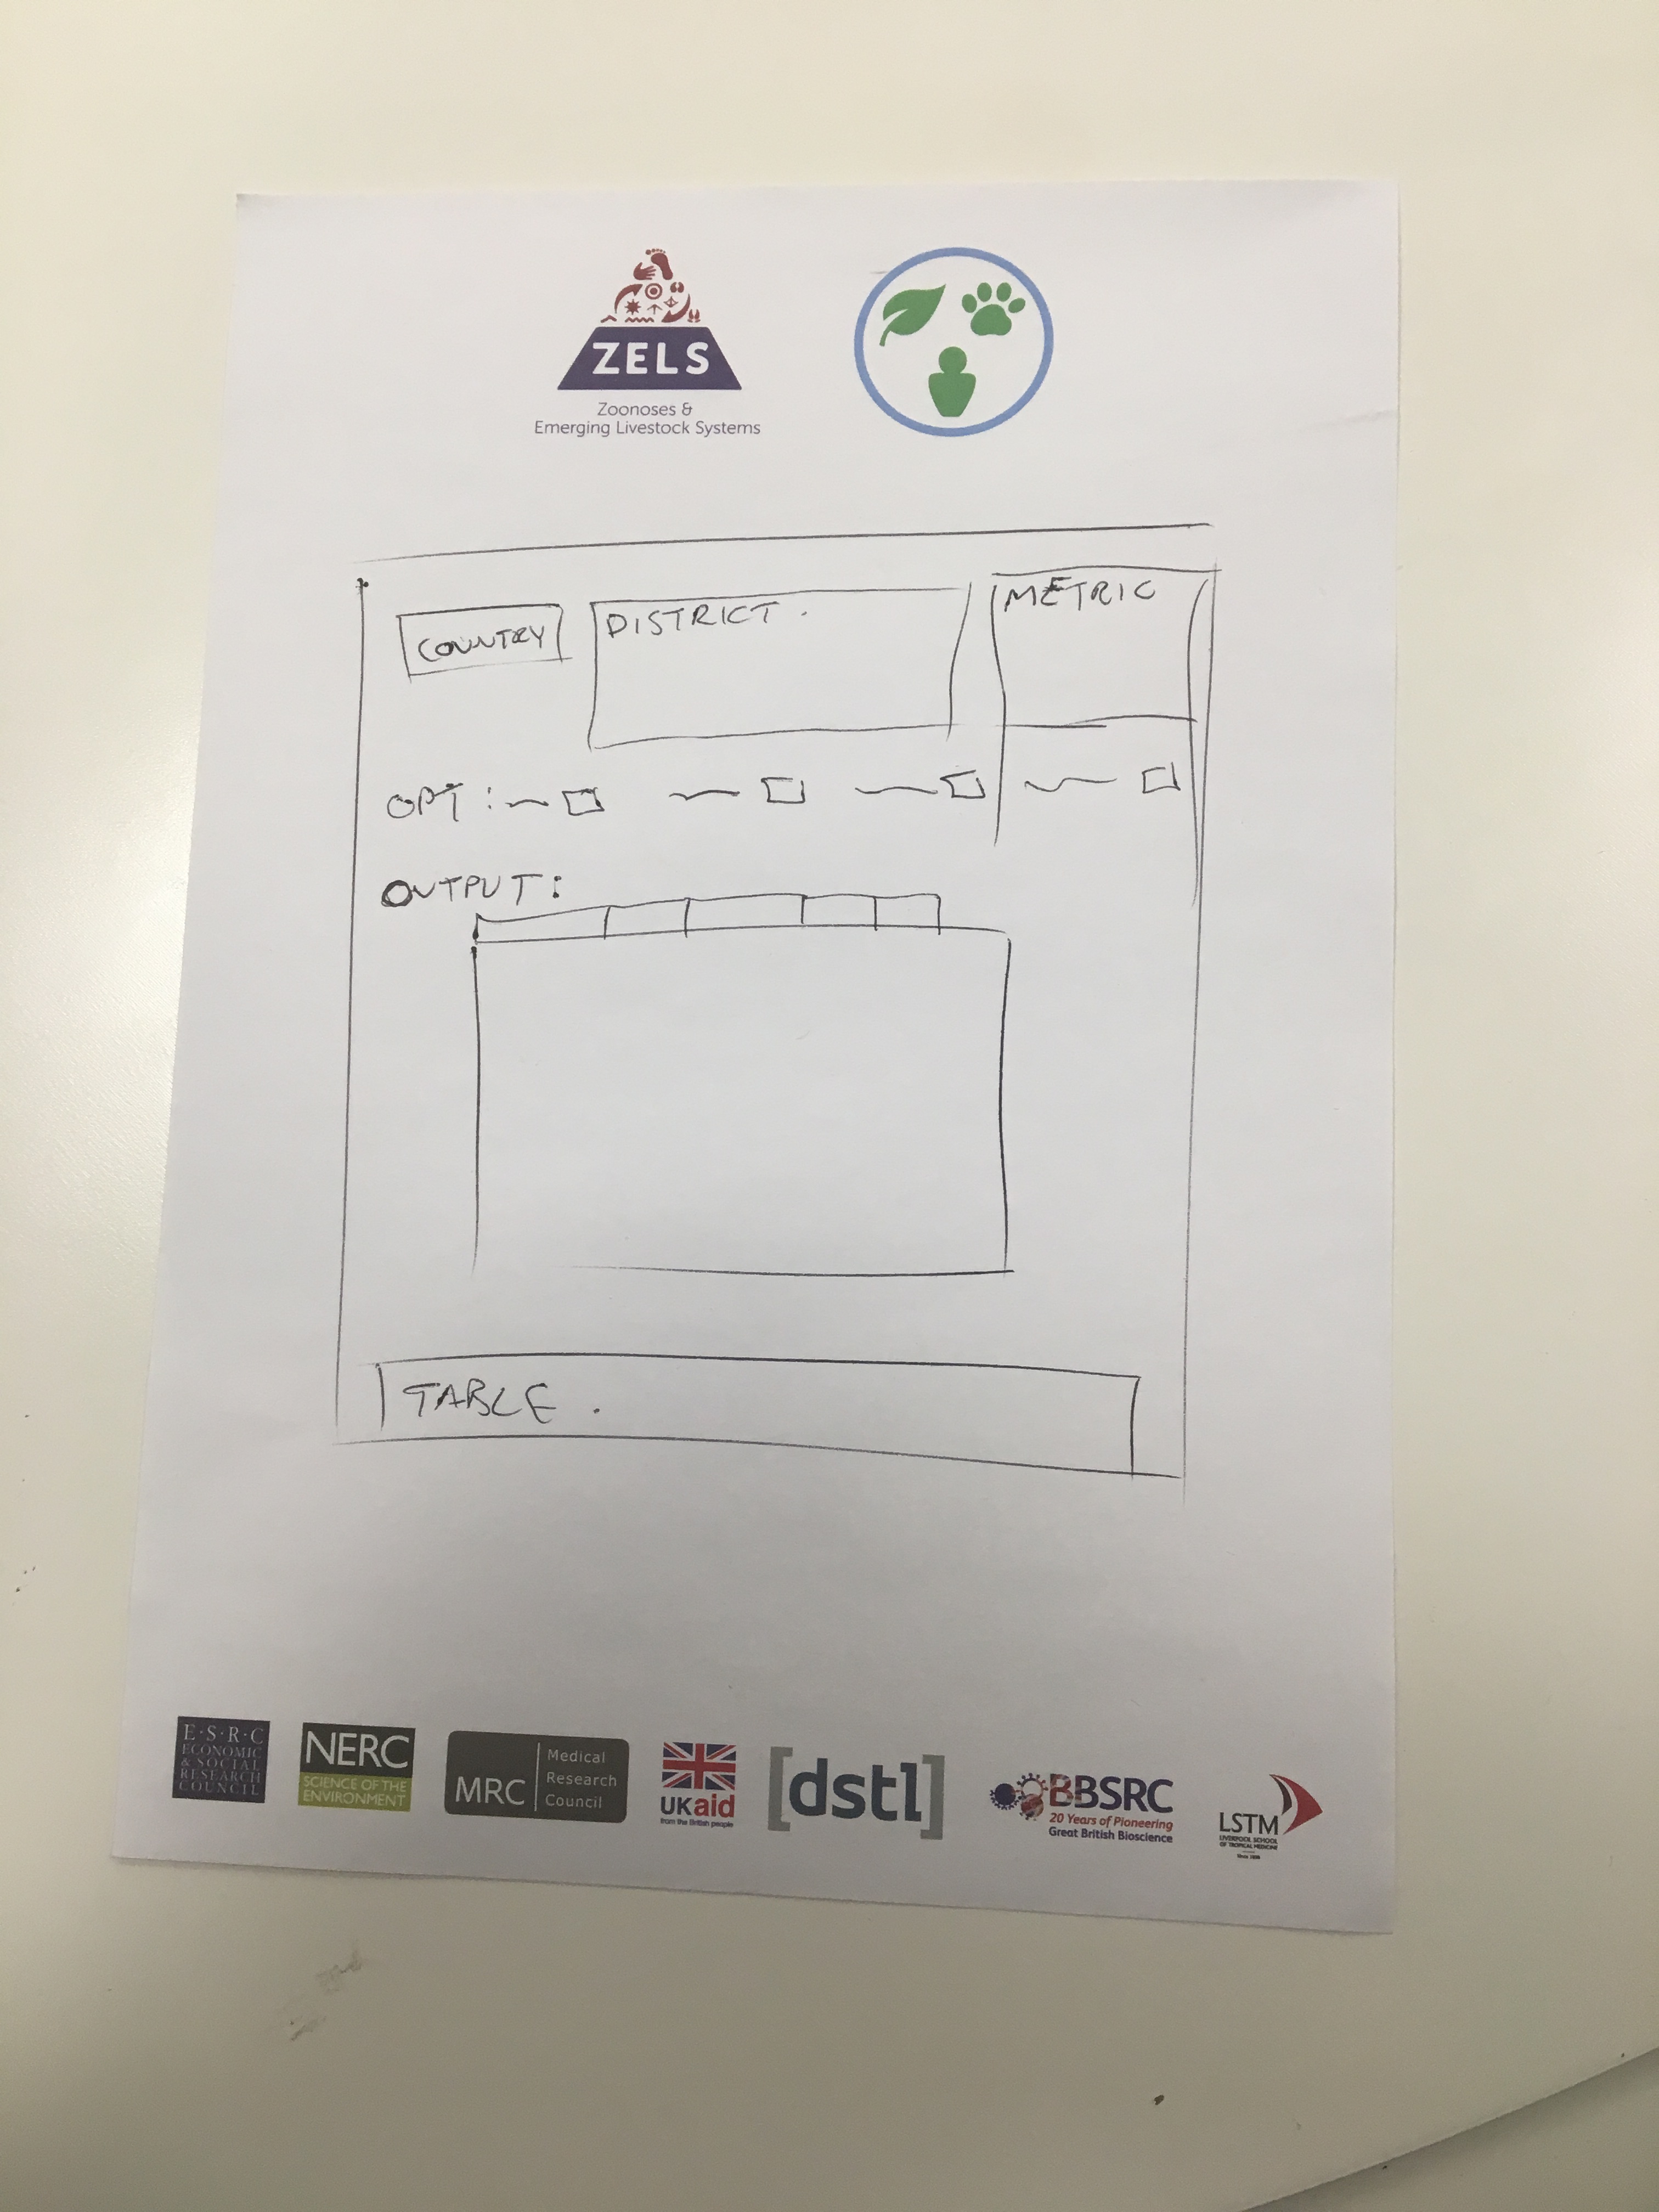 ZELS
Zoonoses &
Emerging Livestock Systems
COUNTRY
DISTRICT.
METRIC
OPT:
OUTPUT:
TABLE.
E·S·R·C
ECONOMIC
& SOCIAL
RESEARCH
COUNCIL
NERC
SCIENCE OF THE
ENVIRONMENT
MRC
Medical
Research
Council
UKaid
from the British people
[dstl]
BBSRC
20 Years of Pioneering
Great British Bioscience
LSTM
LIVERPOOL SCHOOL
OF TROPICAL MEDICINE
Since 1898